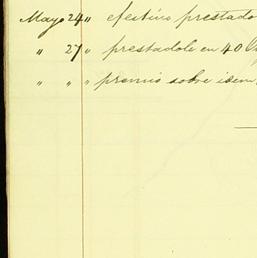 Mayo 24 " efectivo prestado
" 27 " prestadole en 40
" " " premio sobre idem